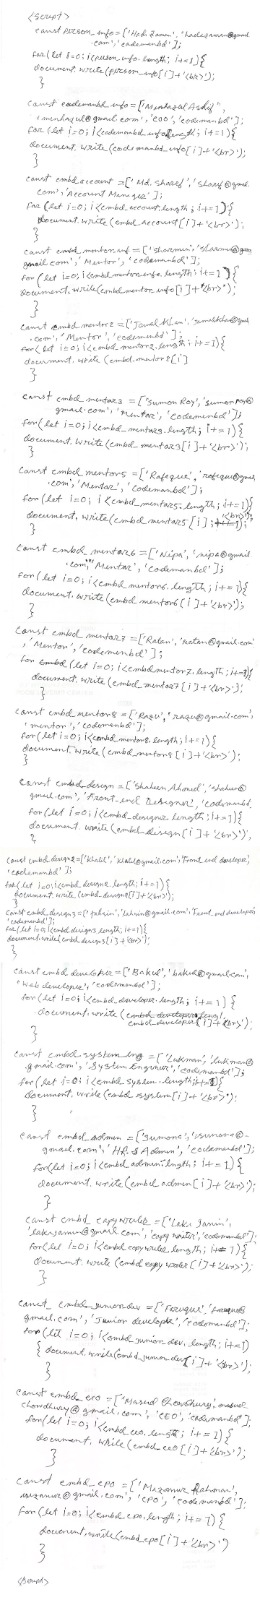 <script>
const person_info = ['Hasi Zaman', 'hadezaman@gmail
.com', 'codemanbd'];
for (let i=0; i<person_info.length; i+=1){
document.write(person_info[i]+'<br>');
}
const codemanbd_info = ['Minhazul Asif',
'minhazul@gmail.com', 'COO', 'codemanbd'];
for (let i=0; i<codemanbd_info.length; i+=1){
document.write(codemanbd_info[i]+'<br>');
}
const cmbd_account = ['Md. Sharif', 'sharif@gmail
.com', 'Account Manager'];
for (let i=0; i<cmbd_account.length; i+=1){
document.write(cmbd_account[i]+'<br>');
}
const cmbd_mentor_info = ['Sharmin', 'sharmin@
gmail.com', 'Mentor', 'codemanbd'];
for (let i=0; i<cmbd_mentor_info.length; i+=1){
document.write(cmbd_mentor_info[i]+'<br>');
}
const cmbd_mentor2 = ['Jamal Khan',
.com', 'Mentor', 'codemanbd'];
for (let i=0; i<cmbd_mentor2.length; i+=1){
document.write (cmbd_mentor2[i]
}
const cmbd_mentor3 = ['Sumon Roy', 'sumonroy@
gmail.com', 'Mentor', 'codemanbd'];
for (let i=0; i<cmbd_mentor3.length; i+=1){
document.write(cmbd_mentor3[i]+'<br>');
}
const cmbd_mentor5 = ['Rafeque', 'rafeque@gmail
.com', 'Mentor', 'codemanbd'];
for (let i=0; i<cmbd_mentor5.length; i+=1){
document.write(cmbd_mentor5[i]+'<br>');
}
const cmbd_mentor6 = ['Nipa', 'nipa@gmail
.com', 'Mentor', 'codemanbd'];
for (let i=0; i<cmbd_mentor6.length; i+=1){
document.write(cmbd_mentor6[i]+'<br>');
}
const cmbd_mentor7 = ['Ratan', 'ratan@gmail.com',
'Mentor', 'codemanbd'];
for (let i=0; i<cmbd_mentor7.length; i+=1){
document.write(cmbd_mentor7[i]+'<br>');
}
const cmbd_mentor8 = ['Razu', 'razu@gmail.com',
'mentor', 'codemanbd'];
for (let i=0; i<cmbd_mentor8.length; i+=1){
document.write(cmbd_mentor8[i]+'<br>');
}
const cmbd_design = ['Shaheen Ahmed',
gmail.com', 'Front-end Designer', 'codemanbd
for (let i=0; i<cmbd_design.length; i+=1){
document.write(cmbd_design[i]+'<br>');
}
const cmbd_design2 = ['Khalil', 'khalil@gmail.com', 'Front_end developer',
'codemanbd'];
for (let i=0; i<cmbd_design2.length; i+=1){
document.write(cmbd_design2[i]+'<br>');
}
const cmbd_design3 = ['Fahim', 'fahim@gmail.com', 'Front_end developer'
'codemanbd'];
for (let i=0; i<cmbd_design3.length; i+=1){
document.write(cmbd_design3[i]+'<br>');
}
const cmbd_developer = ['Bakul', 'bakul@gmail.com',
'Web developer', 'codemanbd'];
for (let i=0; i<cmbd_developer.length; i+=1){
document.write(
cmbd_developer[i]+'<br>');
}
const cmbd_system_eng = ['Lukman', 'lukman@
gmail.com', 'System Engineer', 'codemanbd'];
for (let i=0; i<cmbd_system.length; i+=1){
document.write(cmbd_system[i]+'<br>');
}
const cmbd_admin = ['Sumona',
gmail.com', 'HR & Admin', 'codemanbd'];
for (let i=0; i<cmbd_admin.length; i+=1){
document.write(cmbd_admin[i]+'<br>');
}
const cmbd_copy_writer = ['Laki Jamin',
'lakijamin@gmail.com', 'copy writer', 'codemanbd'];
for (let i=0; i<cmbd_copy_writer.length; i+=1){
document.write(cmbd_copy_writer[i]+'<br>');
}
const cmbd_junior_dev = ['Faruque',
gmail.com', 'Junior developer', 'codemanbd'];
for (let i=0; i<cmbd_junior_dev.length; i+=1)
{ document.write(cmbd_junior_dev[i]+'<br>');
}
const cmbd_ceo = ['Masud Chowdhury', masud
chowdhury@gmail.com', 'CEO', 'codemanbd'];
for (let i=0; i<cmbd_ceo.length; i+=1){
document.write(cmbd_ceo[i]+'<br>');
}
const cmbd_cpo = ['Mizanur Rahman',
mizanur@gmail.com', 'CPO', 'codemanbd'];
for (let i=0; i<cmbd_cpo.length; i+=1){
document.write(cmbd_cpo[i]+'<br>')
}
</script>